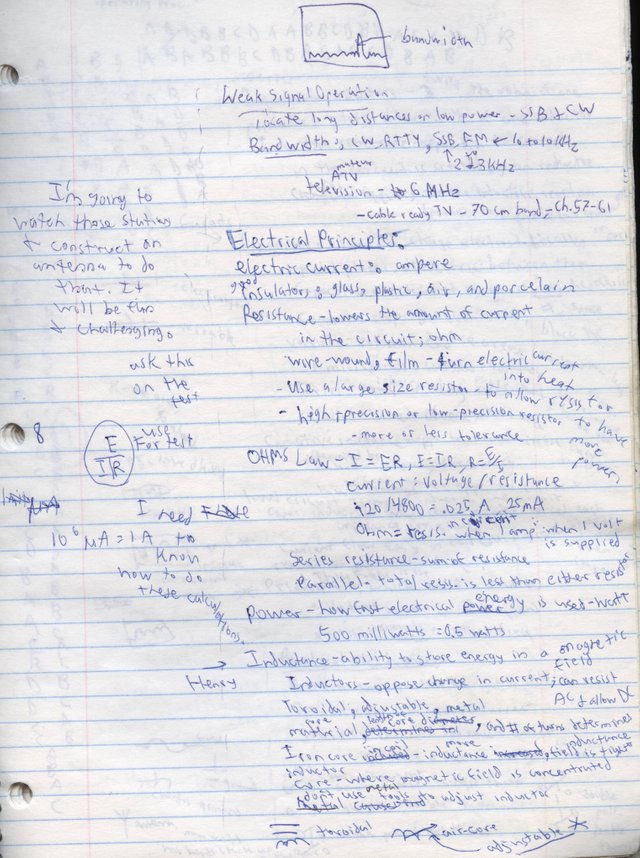 bandwidth
Weak Signal Operation
Locate long distances or low power - SSB & CW
Bandwidth: CW, RTTY, SSB, FM ← 10 to 10 kHz
↑ 2 to 3 kHz
amateur
ATV
television - 6 MHz
- cable ready TV - 70 cm band, - Ch. 57-61
I'm going to
watch those stations
& construct an
antenna to do
that. It
will be fun
& challenging.
Electrical Principles:
electric current: ampere
good
Insulators: glass, plastic, air, and porcelain
Resistance - lowers the amount of current
in the circuit; ohm
ask this
on the
test
wire-wound, film - turn electric current
into heat
- Use a large size resistor to allow rysistor
to have
more
power
- high-precision or low-precision resistor
- more or less tolerance
8
E
IR
use
For test
OHMS Law - I = ER, E = IR, R = E/I
current: voltage/resistance
120/4800 = .025 A 25mA
µA
10⁶ µA = 1 A
I need
to
know
how to do
these calculations
Ohm = resis. in circuit when 1 amp when 1 volt
is supplied
Series resistance - sum of resistance
Parallel - total resis. is less than either resistor
energy
Power - how fast electrical power is used - watt
500 milliwatts = 0.5 watts
→
Henry
Inductance - ability to store energy in a magnetic
field
Inductors - oppose change in current; can resist
AC & allow DC
Toroidal, adjustable, metal
core
material, core diameter, and # of turns determined
inductance
Iron core - more inductance, field is tighter
inductor
core - where magnetic field is concentrated
don't use metal tools to adjust inductor
toroidal
air-core
adjustable